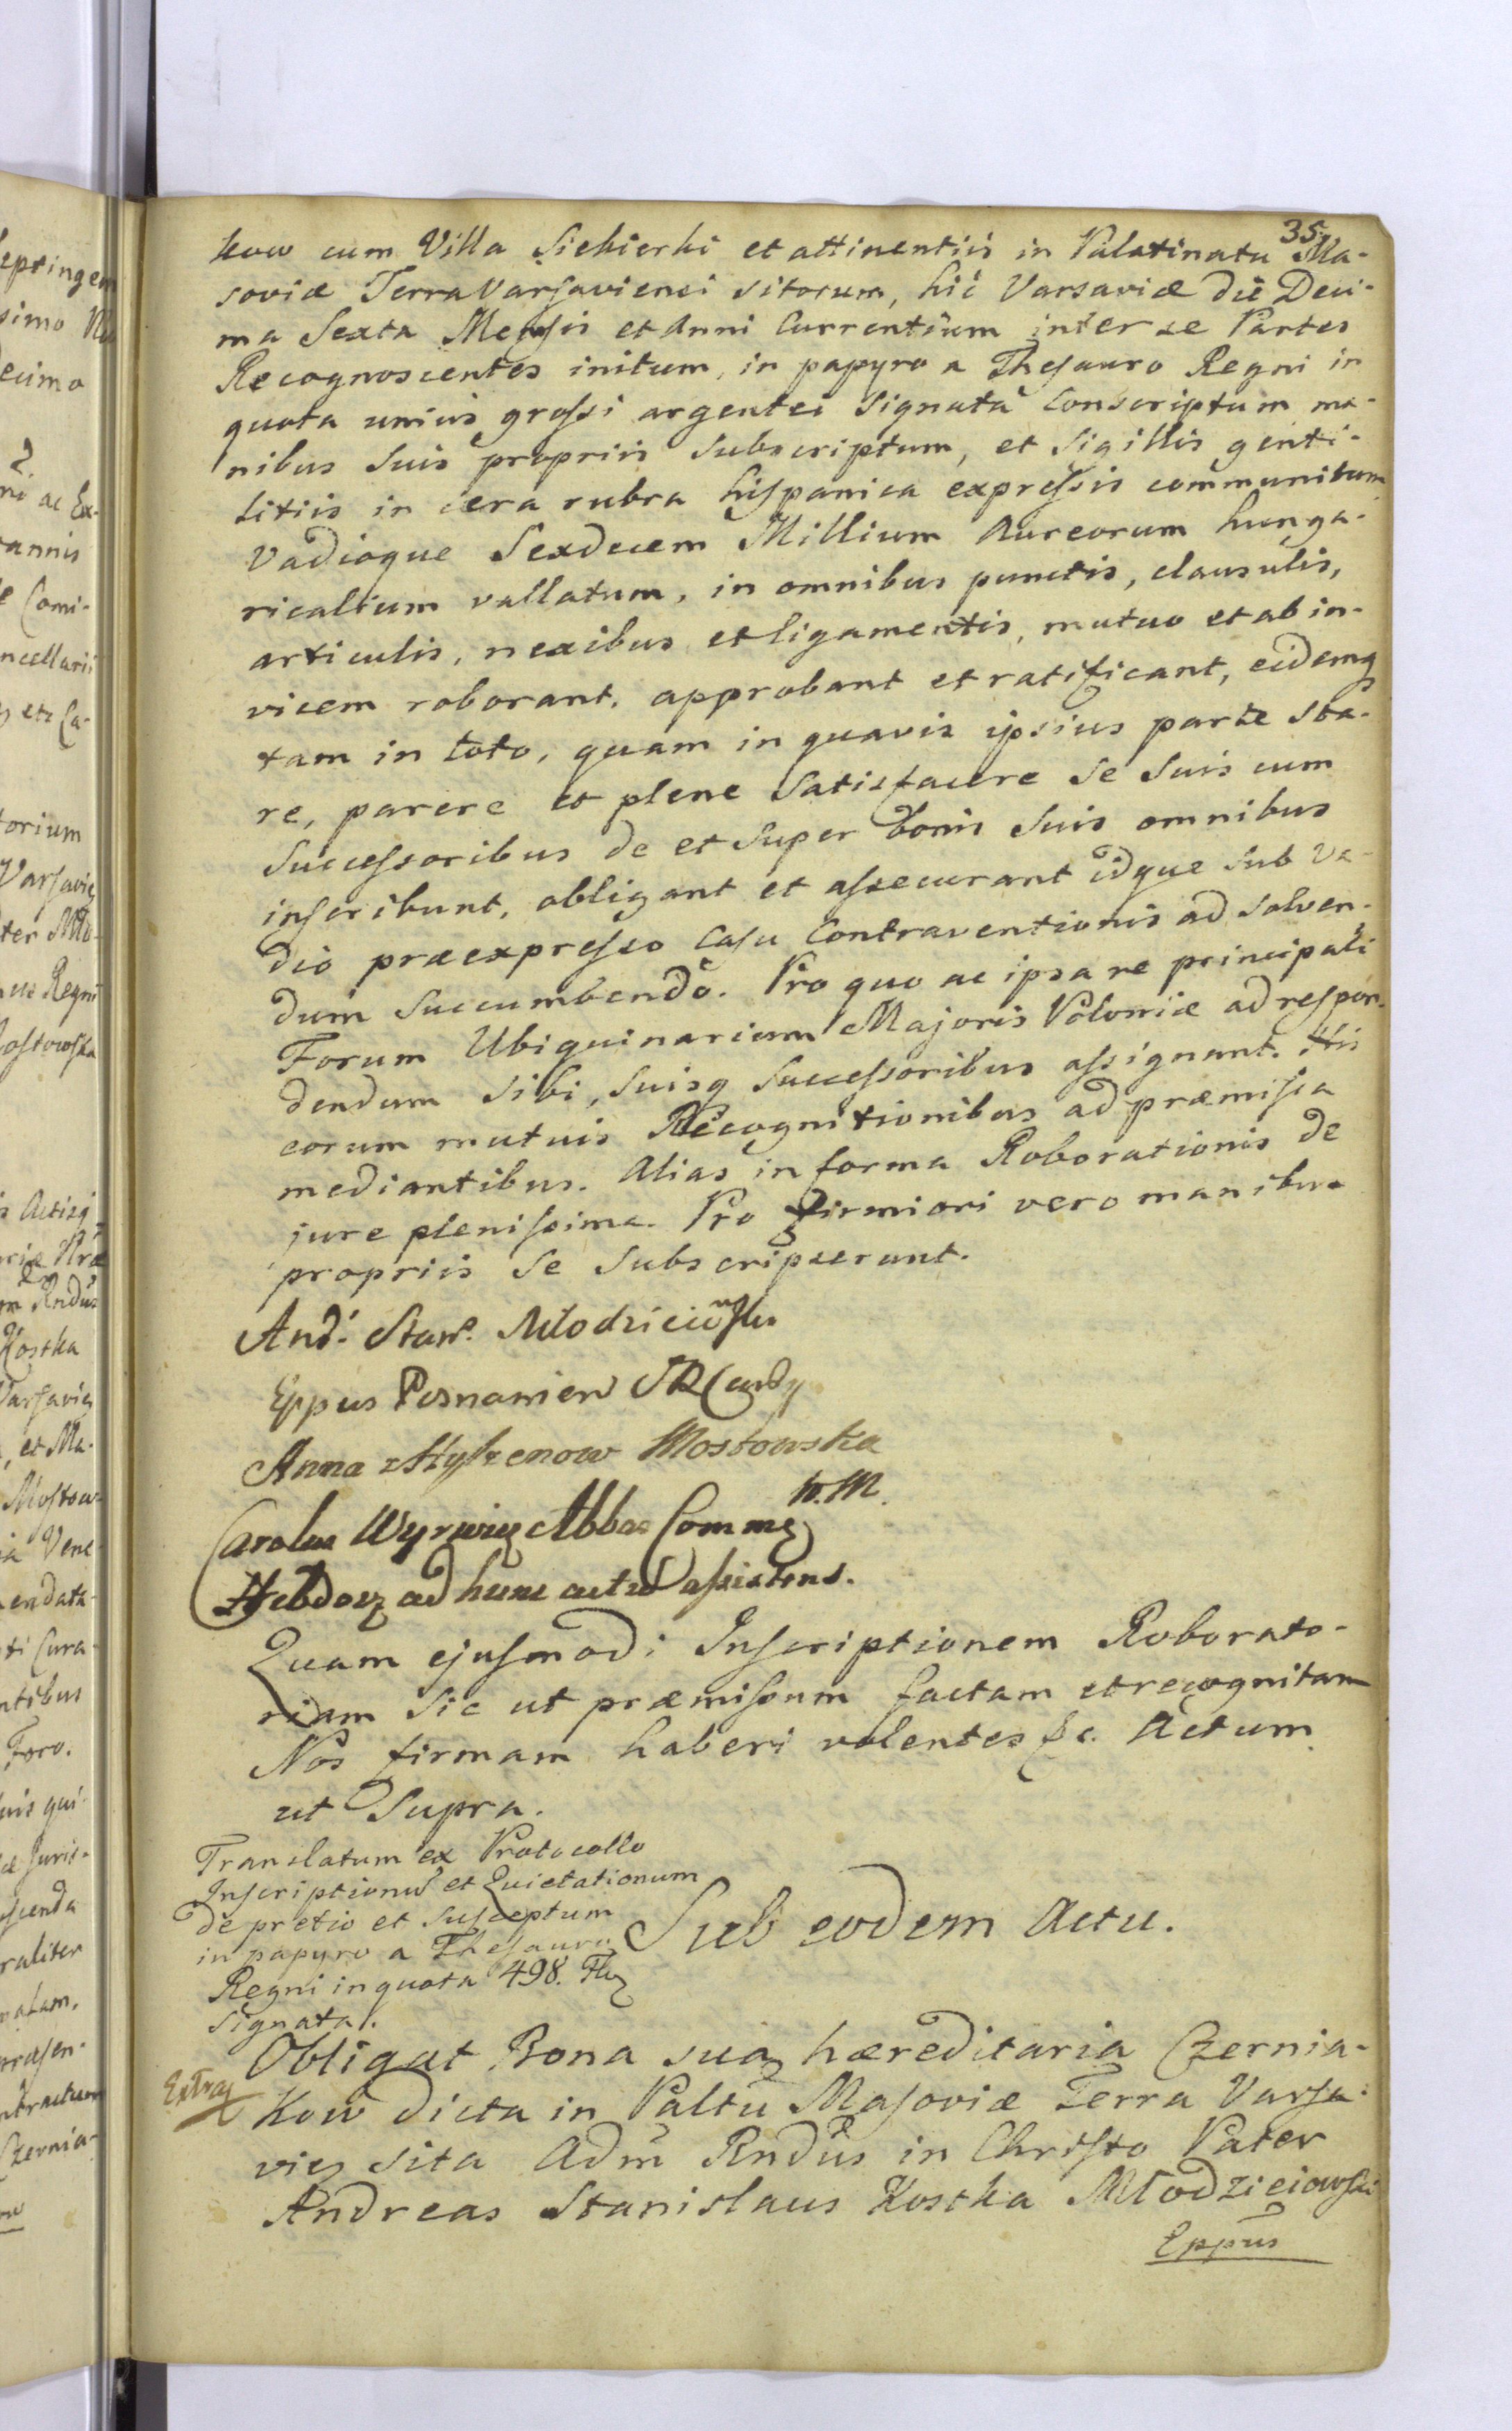 35.
kow cum Villa Siekierki et attinentiis in Palatinatu Ma-
soviæ Terra Varsaviensi sitorum, hic Varsaviæ die Deci-
ma Sexta Mensis et Anni Currentium inter se Partes
Recognoscentes initum, in papyro a Thesauro Regni in
quota unius grossi argentei Signata Conscriptum ma-
nibus suis propriis subscriptum, et Sigillis genti-
litiis in cera rubra hispanica expressis communitum
Vadioque Sexdecem Millium Aureorum hunga-
ricalium vallatum, in omnibus punctis, clausulis,
articulis, nexibus et ligamentis, mutuo et ab in-
vicem roborant, approbant et ratificant, eidemq
tam in toto, quam in quavis ipsius parte sta-
re, parere et plene Satisfacere se suis cum
Successoribus de et super bonis suis omnibus
inscribunt, obligant et assecurant idque sub va-
dio præexpresso Casu Contraventionis ad solven-
dum succumbendo. Pro quo ac ipsa re principali
Forum Ubiquinarium Majoris Poloniæ ad respon-
dendum sibi, suisq Successoribus assignant. His
eorum mutuis Recognitionibus ad præmissa
mediantibus. Alias in forma Roborationis de
jure plenissima. Pro firmiori vero manibus
propriis se subscripserunt.
And: Stan. Młodzieiowski
Eppus Posnanien
Anna z Hylzenow Mostowska
W. M.
Carolus Wyrwicz Abbas Comm
Hebdov ad hunc actum assistens.
Quam ejusmodi Inscriptionem Roborato-
riam sic ut præmissum factam et recognitam
Nos firmam haberi volentes &c. Actum
ut Supra.
Translatum ex Protocollo
Inscriptionu et Quietationum
de pretio et susceptum
in papyro a Thesauro
Regni in quota 498. Fl
signata.
Sub eodem Actu.
Extra
Obligat Bona sua hæreditaria Czernia-
kow dicta in Paltu Masoviæ Terra Varsa-
vien sita Adm Rndus in Christo Pater
Andreas Stanislaus Kostka Młodzieiowski
Eppus